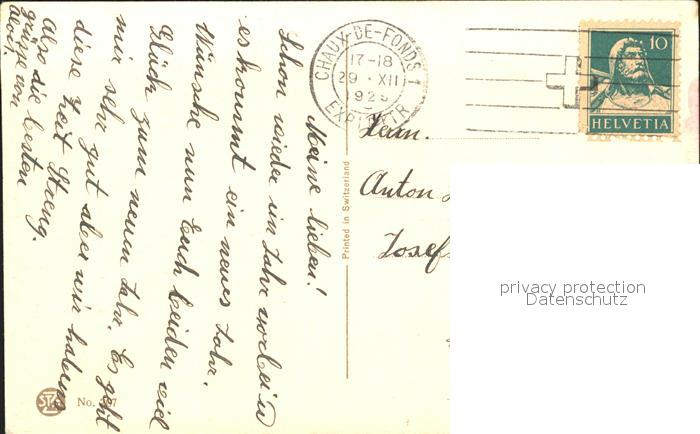 Meine lieben!
Schon wieder ein Jahr vorbei u
es kommt ein neues Jahr.
Wünsche nun Euch beiden viel
Glück zum neuen Jahr. Es geht
mir sehr gut aber wir haben
diese Zeit Streng.
Also die besten
grüsse von
Alois.
CHAUX-DE-FONDS 1
17-18
29. XII
192
EXP
10
HELVETIA
Anton
Josef
Printed in Switzerland
No.
privacy protection
Datenschutz